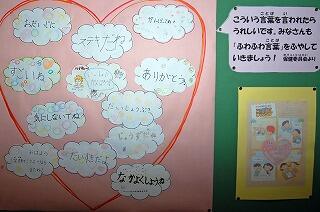 おだいじに
がんばってね
ステキだね
すごいね
ありがとう
だいじょうぶ?
気にしないでね
じょうずだね
おはよう
だいすきだよ
なかよくしようね
こういう言葉を言われたら
うれしいです。みなさんも
「ふわふわ言葉」をふやして
いきましょう!
保健委員会より